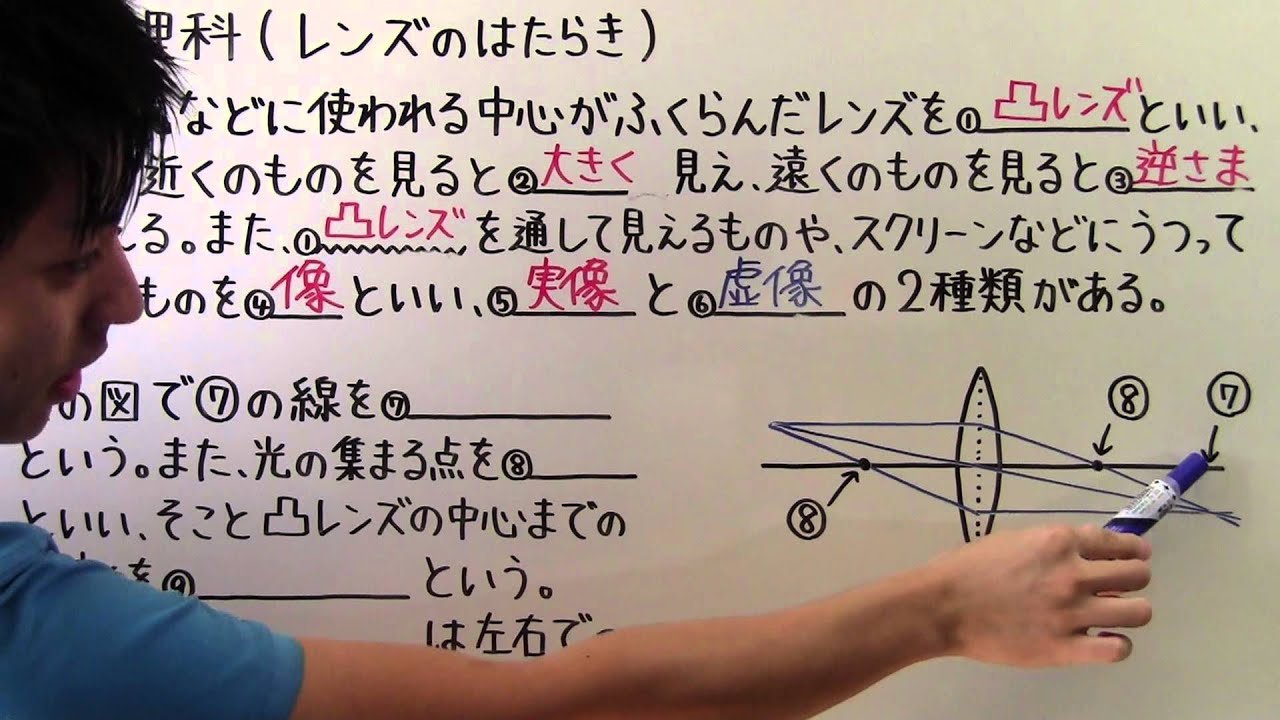 理科(レンズのはたらき)
などに使われる中心がふくらんだレンズを①凸レンズといい、
近くのものを見ると②大きく 見え、遠くのものを見ると③逆さま
る。また、①凸レンズを通して見えるものや、スクリーンなどにうつって
ものを④像といい、⑤実像と⑥虚像の2種類がある。
の図で⑦の線を⑦
という。また、光の集まる点を⑧
といい、そこと凸レンズの中心までの
を⑨ という。
は左右で
⑧
⑦
⑧